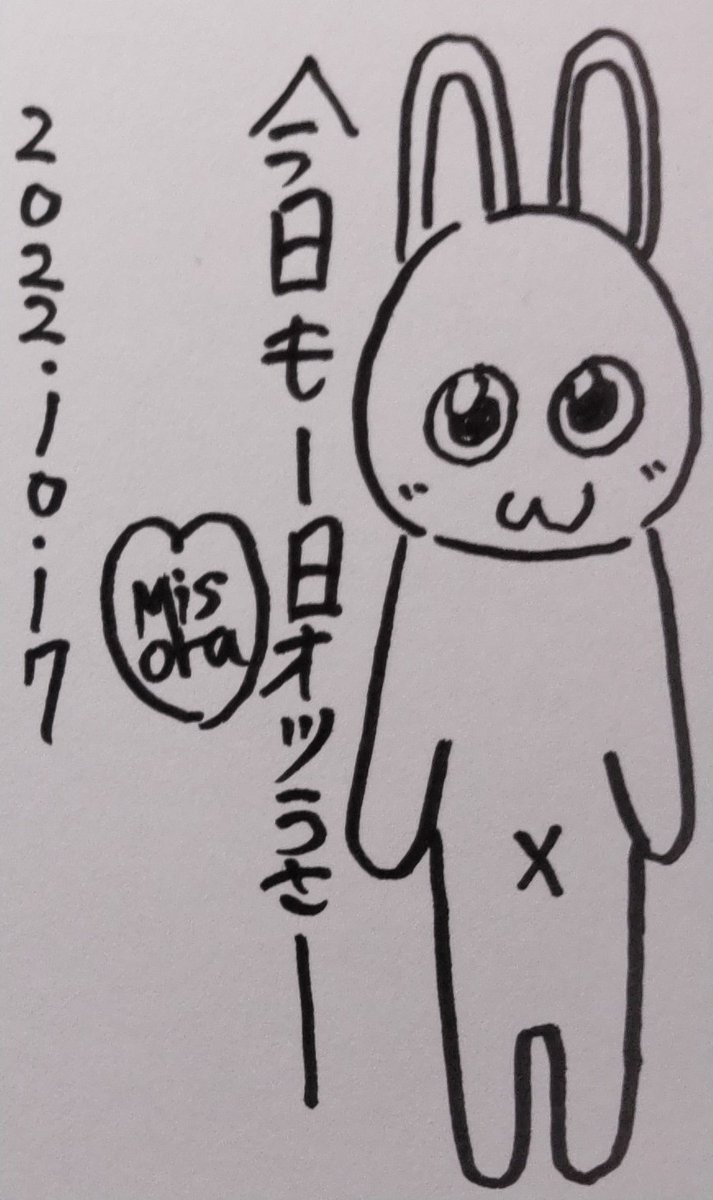 今日も一日オツうさー
Mis
ora
2022.10.17